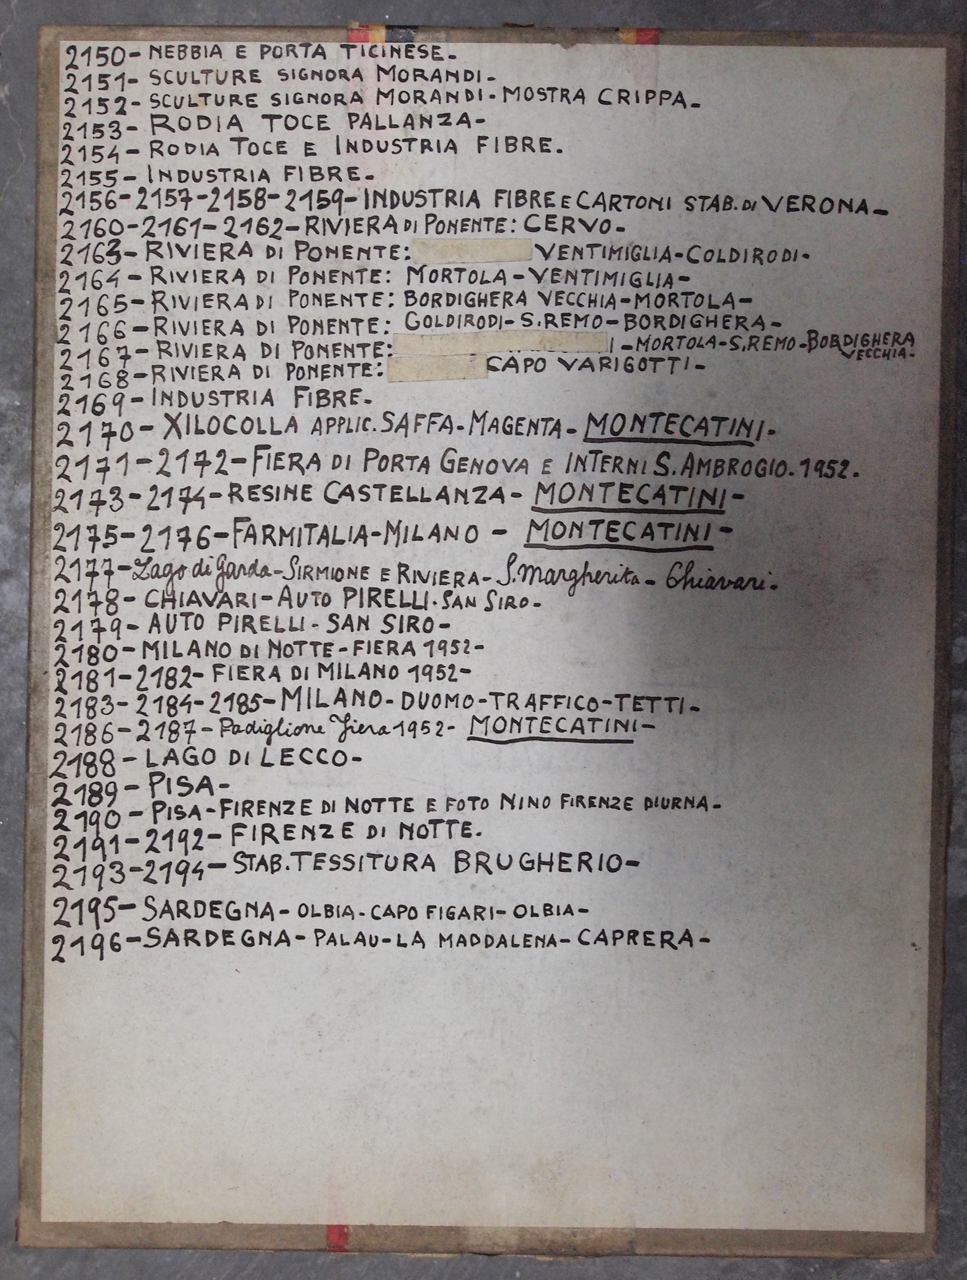 2150- NEBBIA E PORTA TICINESE-
2151- SCULTURE SIGNORA MORANDI-
2152- SCULTURE SIGNORA MORANDI-MOSTRA CRIPPA-
2153- RODIA TOCE PALLANZA-
2154- RODIA TOCE E INDUSTRIA FIBRE.
2155- INDUSTRIA FIBRE-
2156-2157-2158-2159-INDUSTRIA FIBRE E CARTONI STAB. DI VERONA-
2160-2161-2162-RIVIERA DI PONENTE: CERVO-
2163-RIVIERA DI PONENTE: VENTIMIGLIA-COLDIRODI-
2164-RIVIERA DI PONENTE: MORTOLA-VENTIMIGLIA-
2165-RIVIERA DI PONENTE: BORDIGHERA VECCHIA-MORTOLA-
2166-RIVIERA DI PONENTE: COLDIRODI-S.REMO-BORDIGHERA-
2167-RIVIERA DI PONENTE: I-MORTOLA-S.REMO-BORDIGHERA VECCHIA-
2168-RIVIERA DI PONENTE: CAPO VARIGOTTI-
2169-INDUSTRIA FIBRE-
2170-XILOCOLLA APPLIC. SAFFA-MAGENTA-MONTECATINI-
2171-2172-FIERA DI PORTA GENOVA E INTERNI S. AMBROGIO-1952.
2173-2174-RESINE CASTELLANZA-MONTECATINI-
2175-2176-FARMITALIA-MILANO-MONTECATINI-
2177-Lago di Garda-SIRMIONE E RIVIERA-S. Margherita-Chiavari-
2178-CHIAVARI-AUTO PIRELLI-SAN SIRO-
2179-AUTO PIRELLI-SAN SIRO-
2180-MILANO DI NOTTE-FIERA 1952-
2181-2182-FIERA DI MILANO 1952-
2183-2184-2185-MILANO-DUOMO-TRAFFICO-TETTI-
2186-2187-Padiglione Fiera 1952-MONTECATINI-
2188-LAGO DI LECCO-
2189-PISA-
2190-PISA-FIRENZE DI NOTTE E FOTO NINO FIRENZE DIURNA-
2191-2192-FIRENZE DI NOTTE.
2193-2194-STAB. TESSITURA BRUGHERIO-
2195-SARDEGNA-OLBIA-CAPO FIGARI-OLBIA-
2196-SARDEGNA-PALAU-LA MADDALENA-CAPRERA-